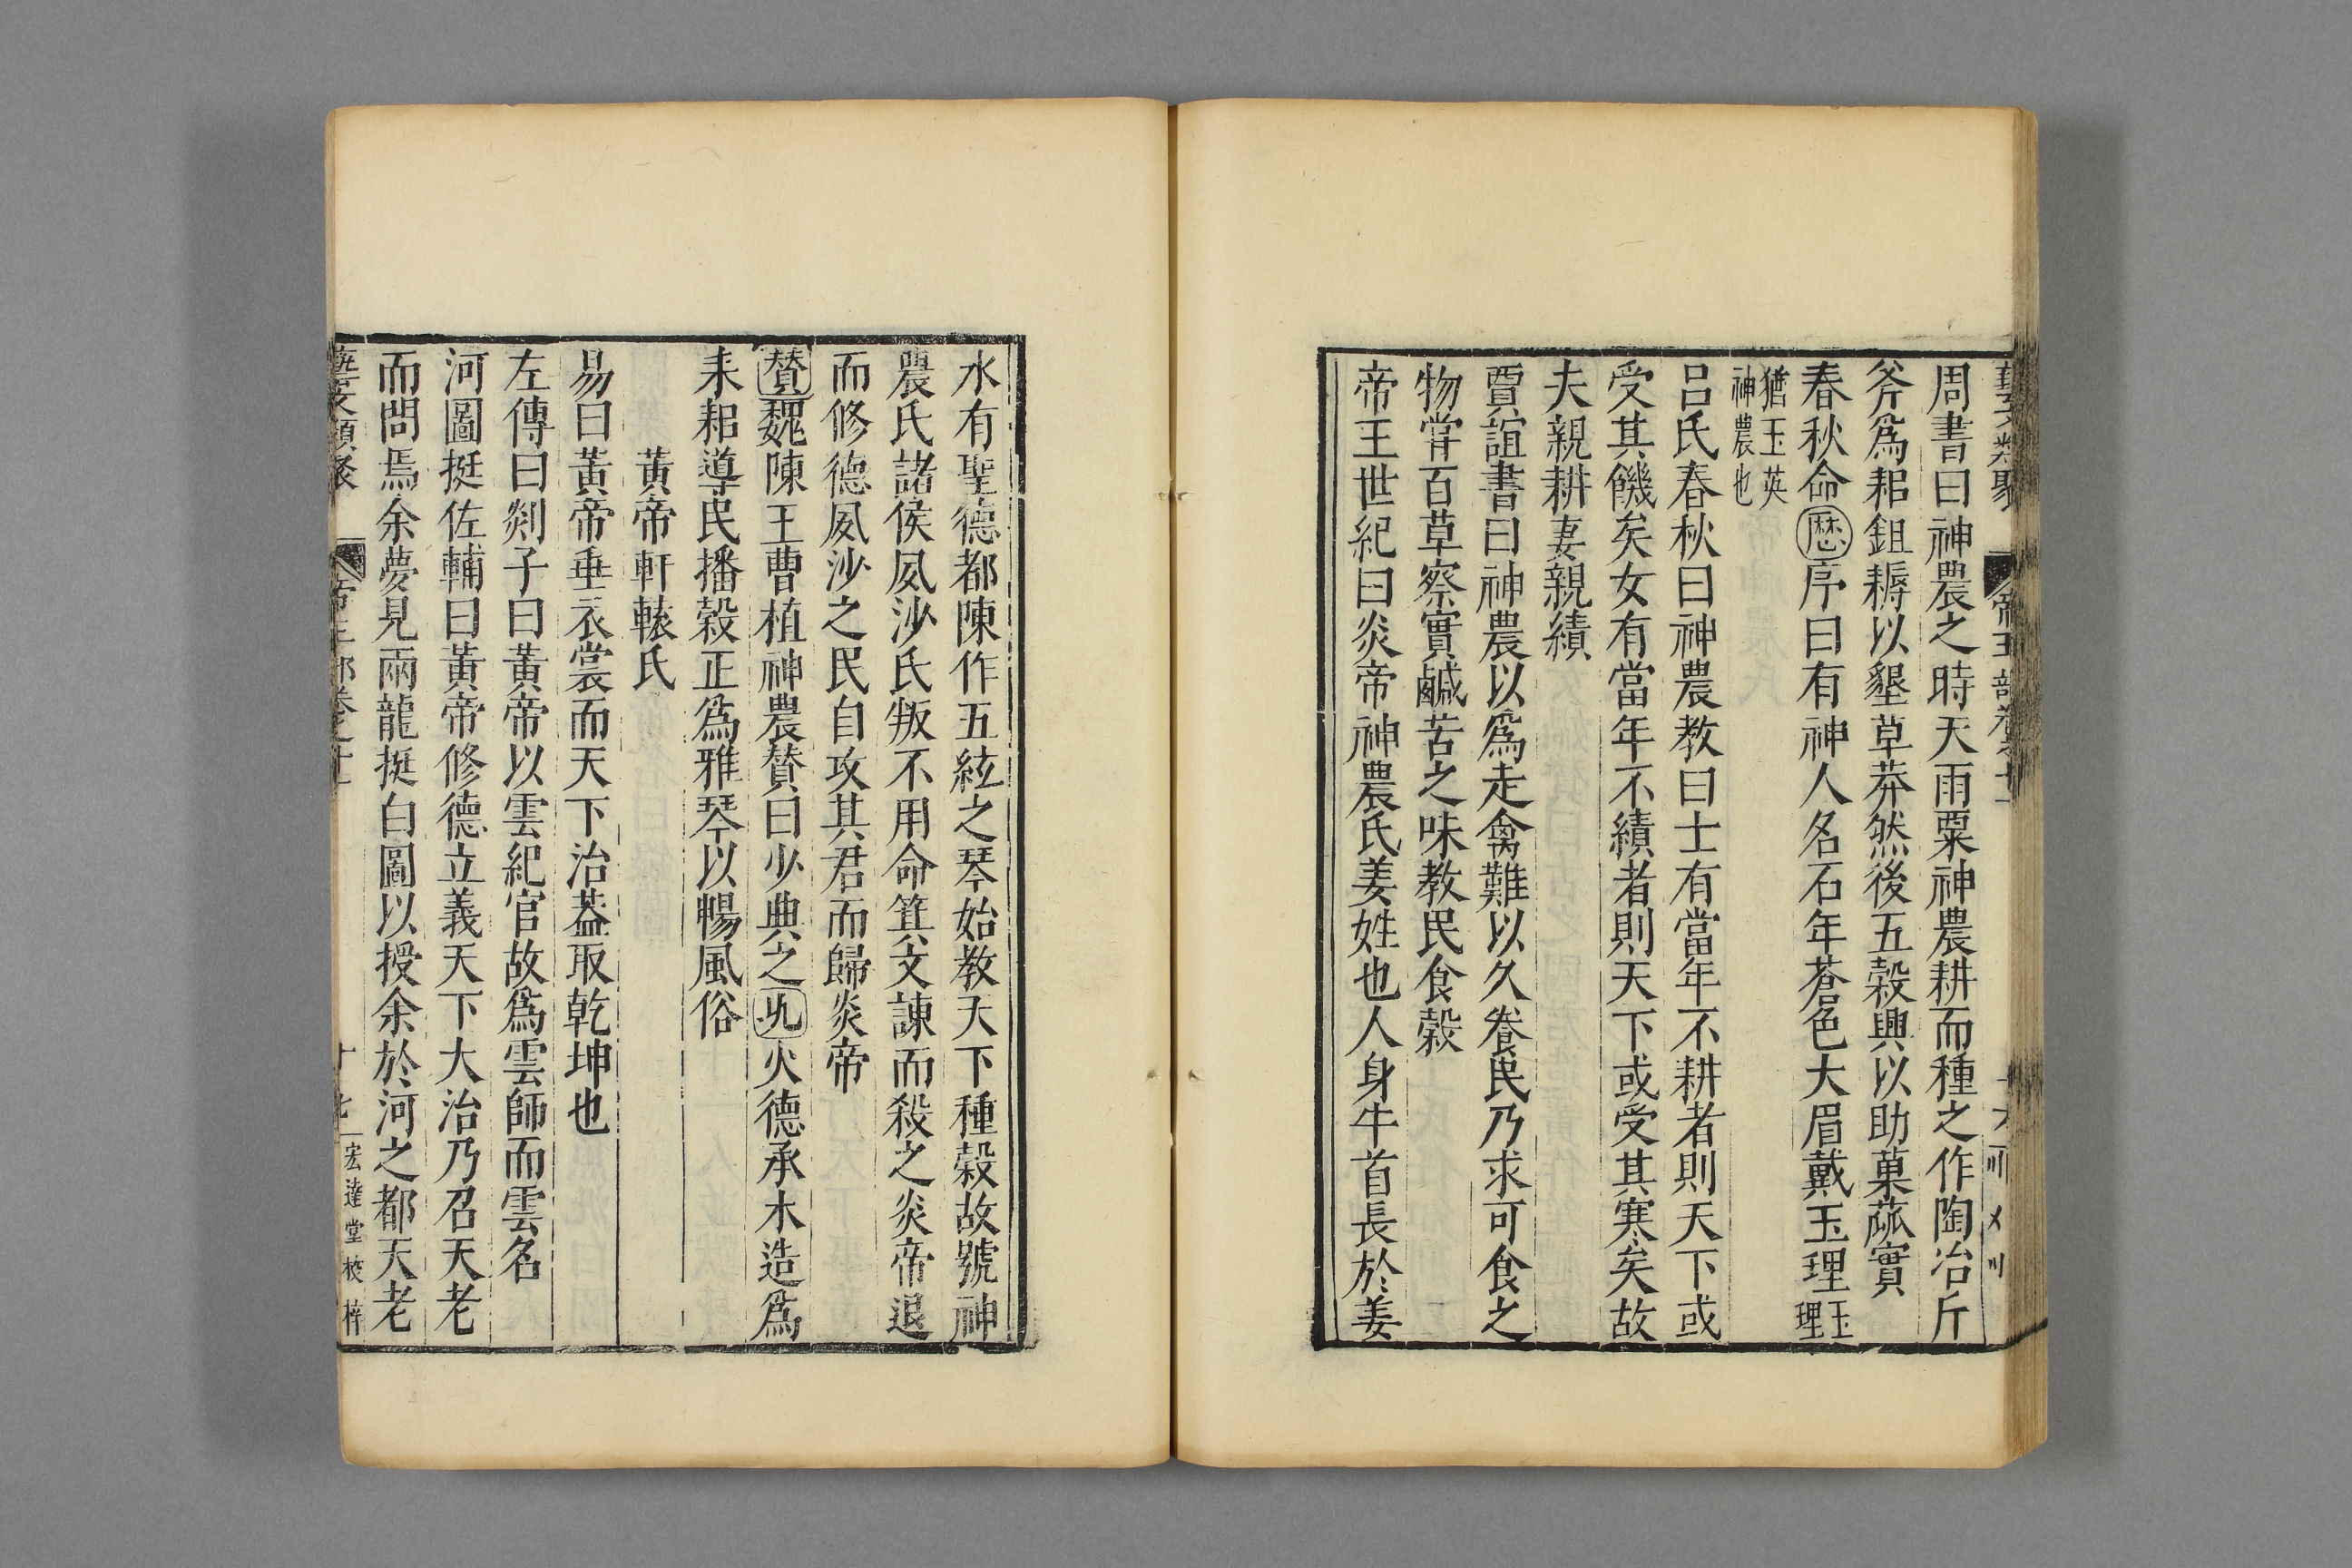 周書曰神農之時天雨粟神農耕而種之作陶冶斤
斧爲耜鉏耨以墾草莽然後五穀興以助菓蓏實
春秋命歷序曰有神人名石年蒼色大眉戴玉理玉理
猶玉英
神農也
呂氏春秋曰神農教曰士有當年不耕者則天下或
受其饑矣女有當年不績者則天下或受其寒矣故
夫親耕妻親績
賈誼書曰神農以爲走禽難以久養民乃求可食之
物嘗百草察實鹹苦之味教民食穀
帝王世紀曰炎帝神農氏姜姓也人身牛首長於姜
水有聖德都陳作五絃之琴始教天下種穀故號神
農氏諸侯夙沙氏叛不用命箕文諫而殺之炎帝退
而修德夙沙之民自攻其君而歸炎帝
贊魏陳王曹植神農贊曰少典之胤火德承木造爲
耒耜導民播穀正爲雅琴以暢風俗
黃帝軒轅氏
易曰黃帝垂衣裳而天下治葢取乾坤也
左傳曰剡子曰黃帝以雲紀官故爲雲師而雲名
河圖挺佐輔曰黃帝修德立義天下大治乃召天老
而問焉余夢見兩龍挺白圖以授余於河之都天老
藝文類聚 帝王部卷之十一 十七 宏達堂校梓